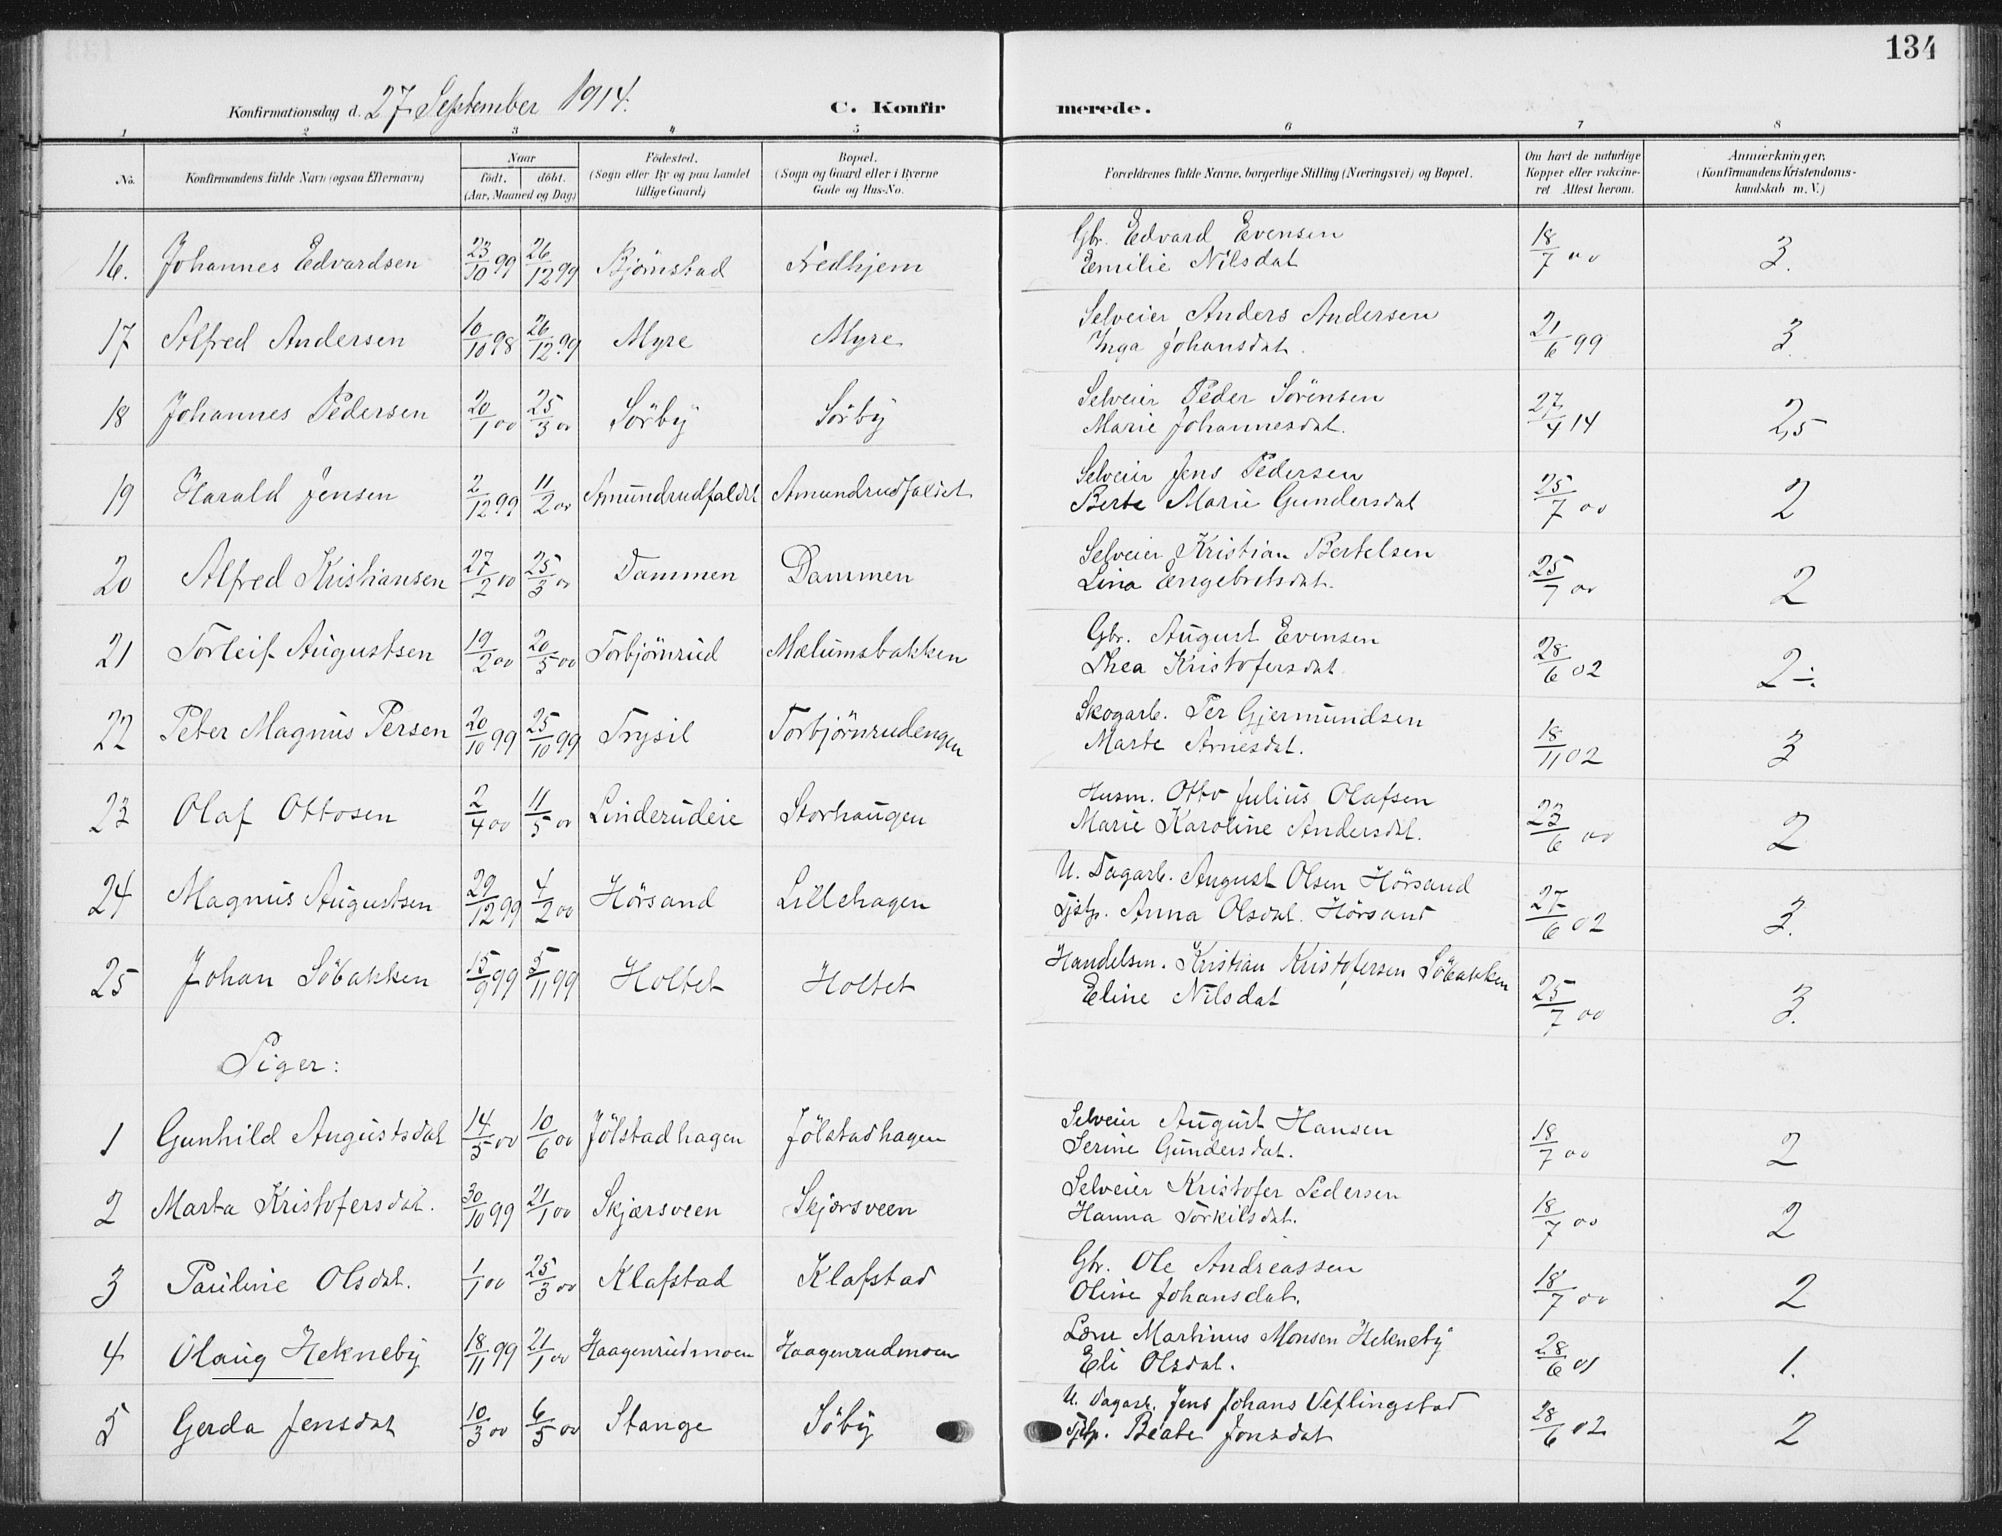 134
Konfirmationsdag d. 27 September 1914. C. Konfirmerede.
1 2 3 4 5 6 7 8
No. Konfirmandens fulde Navn (ogsaa Efternavn) Naar født. døbt. (Aar, Maaned og Dag) Fødested. (Sogn eller By og paa Landet tillige Gaard) Bopæl. (Sogn og Gaard eller i Byerne Gade og Hus-No. Forældrenes fulde Navne, borgerlige Stilling (Næringsvei) og Bopæl. Om havt de naturlige Kopper eller vakcineret Attest herom. Anmærkninger. (Konfirmandens Kristendomskundskab m. V.)
16. Johannes Edvardsen 23/10 99 26/12 99 Bjørnstad Fredhjem Gbr. Edvard Evensen 18/7 00 3.
Emilie Nilsdat
17 Alfred Andersen 10/10 98 26/12 99 Myre Myre Selveier Anders Andersen 21/6 99 3
Inga Johansdat.
18 Johannes Pedersen 20/1 00 25/3 00 Sörby Sörby Selveier Peder Sörensen 27/4 14 2,5
Marie Johannesdat.
19 Harald Jensen 2/12 99 11/2 00 Amundrudfaldet Amundrudfaldet Selveier Jens Pedersen 25/7 00 2
Berte Marie Gundersdat
20 Alfred Kristiansen 27/2 00 25/3 00 Dammen Dammen Selveier Kristian Bertelsen 25/7 00 2
Lina Engebretsdat.
21 Torleif Augustsen 19/2 00 20/5 00 Torbjörnrud Mælumsbakken Gbr. August Evensen 28/6 02 2÷
Thea Kristofersdat.
22 Peter Magnus Persen 20/10 99 25/10 99 Trysil Torbjörnrudengen Skogarb. Per Gjermundsen 18/11 02 3
Marte Arnesdat.
23 Olaf Ottosen 2/4 00 11/5 00 Linderudeie Storhaugen Husm. Otto Julius Olafsen 23/6 00 2
Marie Karoline Andersdat.
24 Magnus Augustsen 29/12 99 4/2 00 Hörsand Lillehagen U. Dagarb. August Olsen Hörsand 27/6 02 3.
Tjstp. Anna Olsdat. Hörsand
25 Johan Söbakken 15/9 99 5/11 99 Holtet Holtet Handelsm. Kristian Kristofersen Söbakken 25/7 00 3.
Eline Nilsdat
Piger:
1 Gunhild Augustsdat 14/5 00 10/6 00 Jölstadhagen Jölstadhagen Selveier August Hansen 18/7 00 2
Serine Gundersdat.
2 Marta Kristofersdat. 30/10 99 21/1 00 Skjærsveen Skjærsveen Selveier Kristofer Pedersen 18/7 00 2
Hanna Torkilsdat.
3 Pauline Olsdat. 1/1 00 25/3 00 Klafstad Klafstad Gbr. Ole Andreassen 18/7 00 2
Oline Johansdat.
4 Olaug Hekneby 18/11 99 21/1 00 Haagenrudmoen Haagenrudmoen Lærer Martinus Monsen Hekneby 28/6 01 1.
Eli Olsdat.
5 Gerda Jensdat 10/3 00 6/5 00 Stange Söby U. Dagarb. Jens Johans Veflingstad 28/6 02 2
Tjstp. Beate Jonsdat